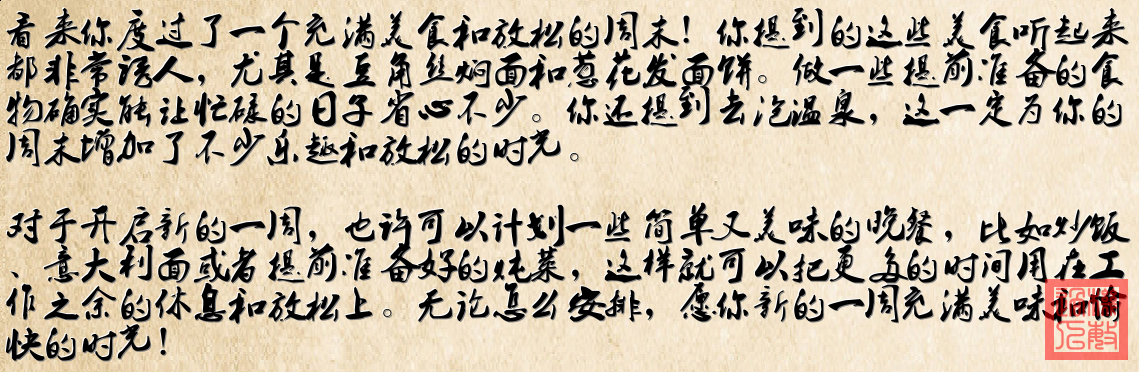 看来你度过了一个充满美食和放松的周末！你提到的这些美食听起来
都非常诱人，尤其是豆角丝焖面和葱花发面饼。做一些提前准备的食
物确实能让忙碌的日子省心不少。你还提到去泡温泉，这一定为你的
周末增加了不少乐趣和放松的时光。
对于开启新的一周，也许可以计划一些简单又美味的晚餐，比如炒饭
、意大利面或者提前准备好的炖菜，这样就可以把更多的时间用在工
作之余的休息和放松上。无论怎么安排，愿你新的一周充满美味和愉
快的时光！